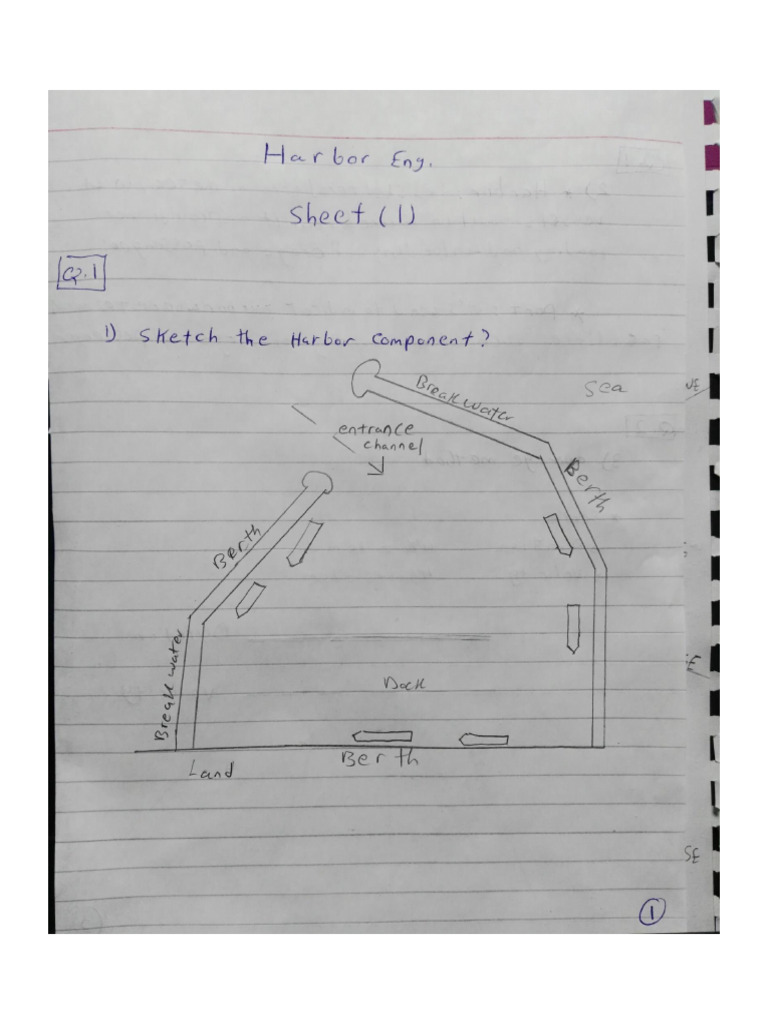 Harbor Eng.
Sheet (1)
Q.1
1) Sketch the Harbor Component?
Breakwater
Sea
entrance
channel
Berth
Berth
Breakwater
Dock
Berth
Land
SE
1